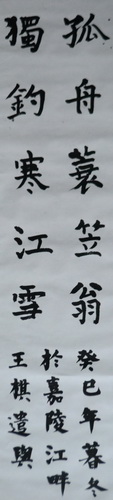 孤舟蓑笠翁
獨釣寒江雪
癸巳年暮冬
於嘉陵江畔
王棋遣興